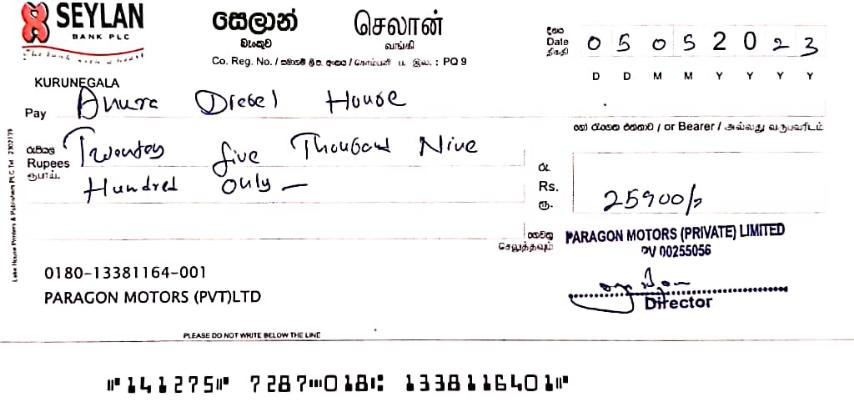 SEYLAN
BANK PLC
The bank with a heart
සෙලාන්
බැංකුව
செலான்
வங்கி
Co. Reg. No. / සමාගම් ලි.ප. අංකය / கம்பனி ப. இல. : PQ 9
දිනය
Date
திகதி
0 5 0 5 2 0 2 3
D D M M Y Y Y Y
KURUNEGALA
Pay Anura Diesel House
හෝ රැගෙන එන්නාට / or Bearer / அல்லது வருபவரிடம்
රුපියල්
Rupees
ரூபாய்.
Twentey five Thousand Nine
Hundred only —
රු.
Rs.
ரூ.
25900/=
ගෙවනු
செலுத்தவும்
PARAGON MOTORS (PRIVATE) LIMITED
PV 00255056
Director
0180-13381164-001
PARAGON MOTORS (PVT)LTD
PLEASE DO NOT WRITE BELOW THE LINE
Lake House Printers & Publishers PLC Tel
⑈141275⑈ 7287⑉018⑆ 1338116401⑈